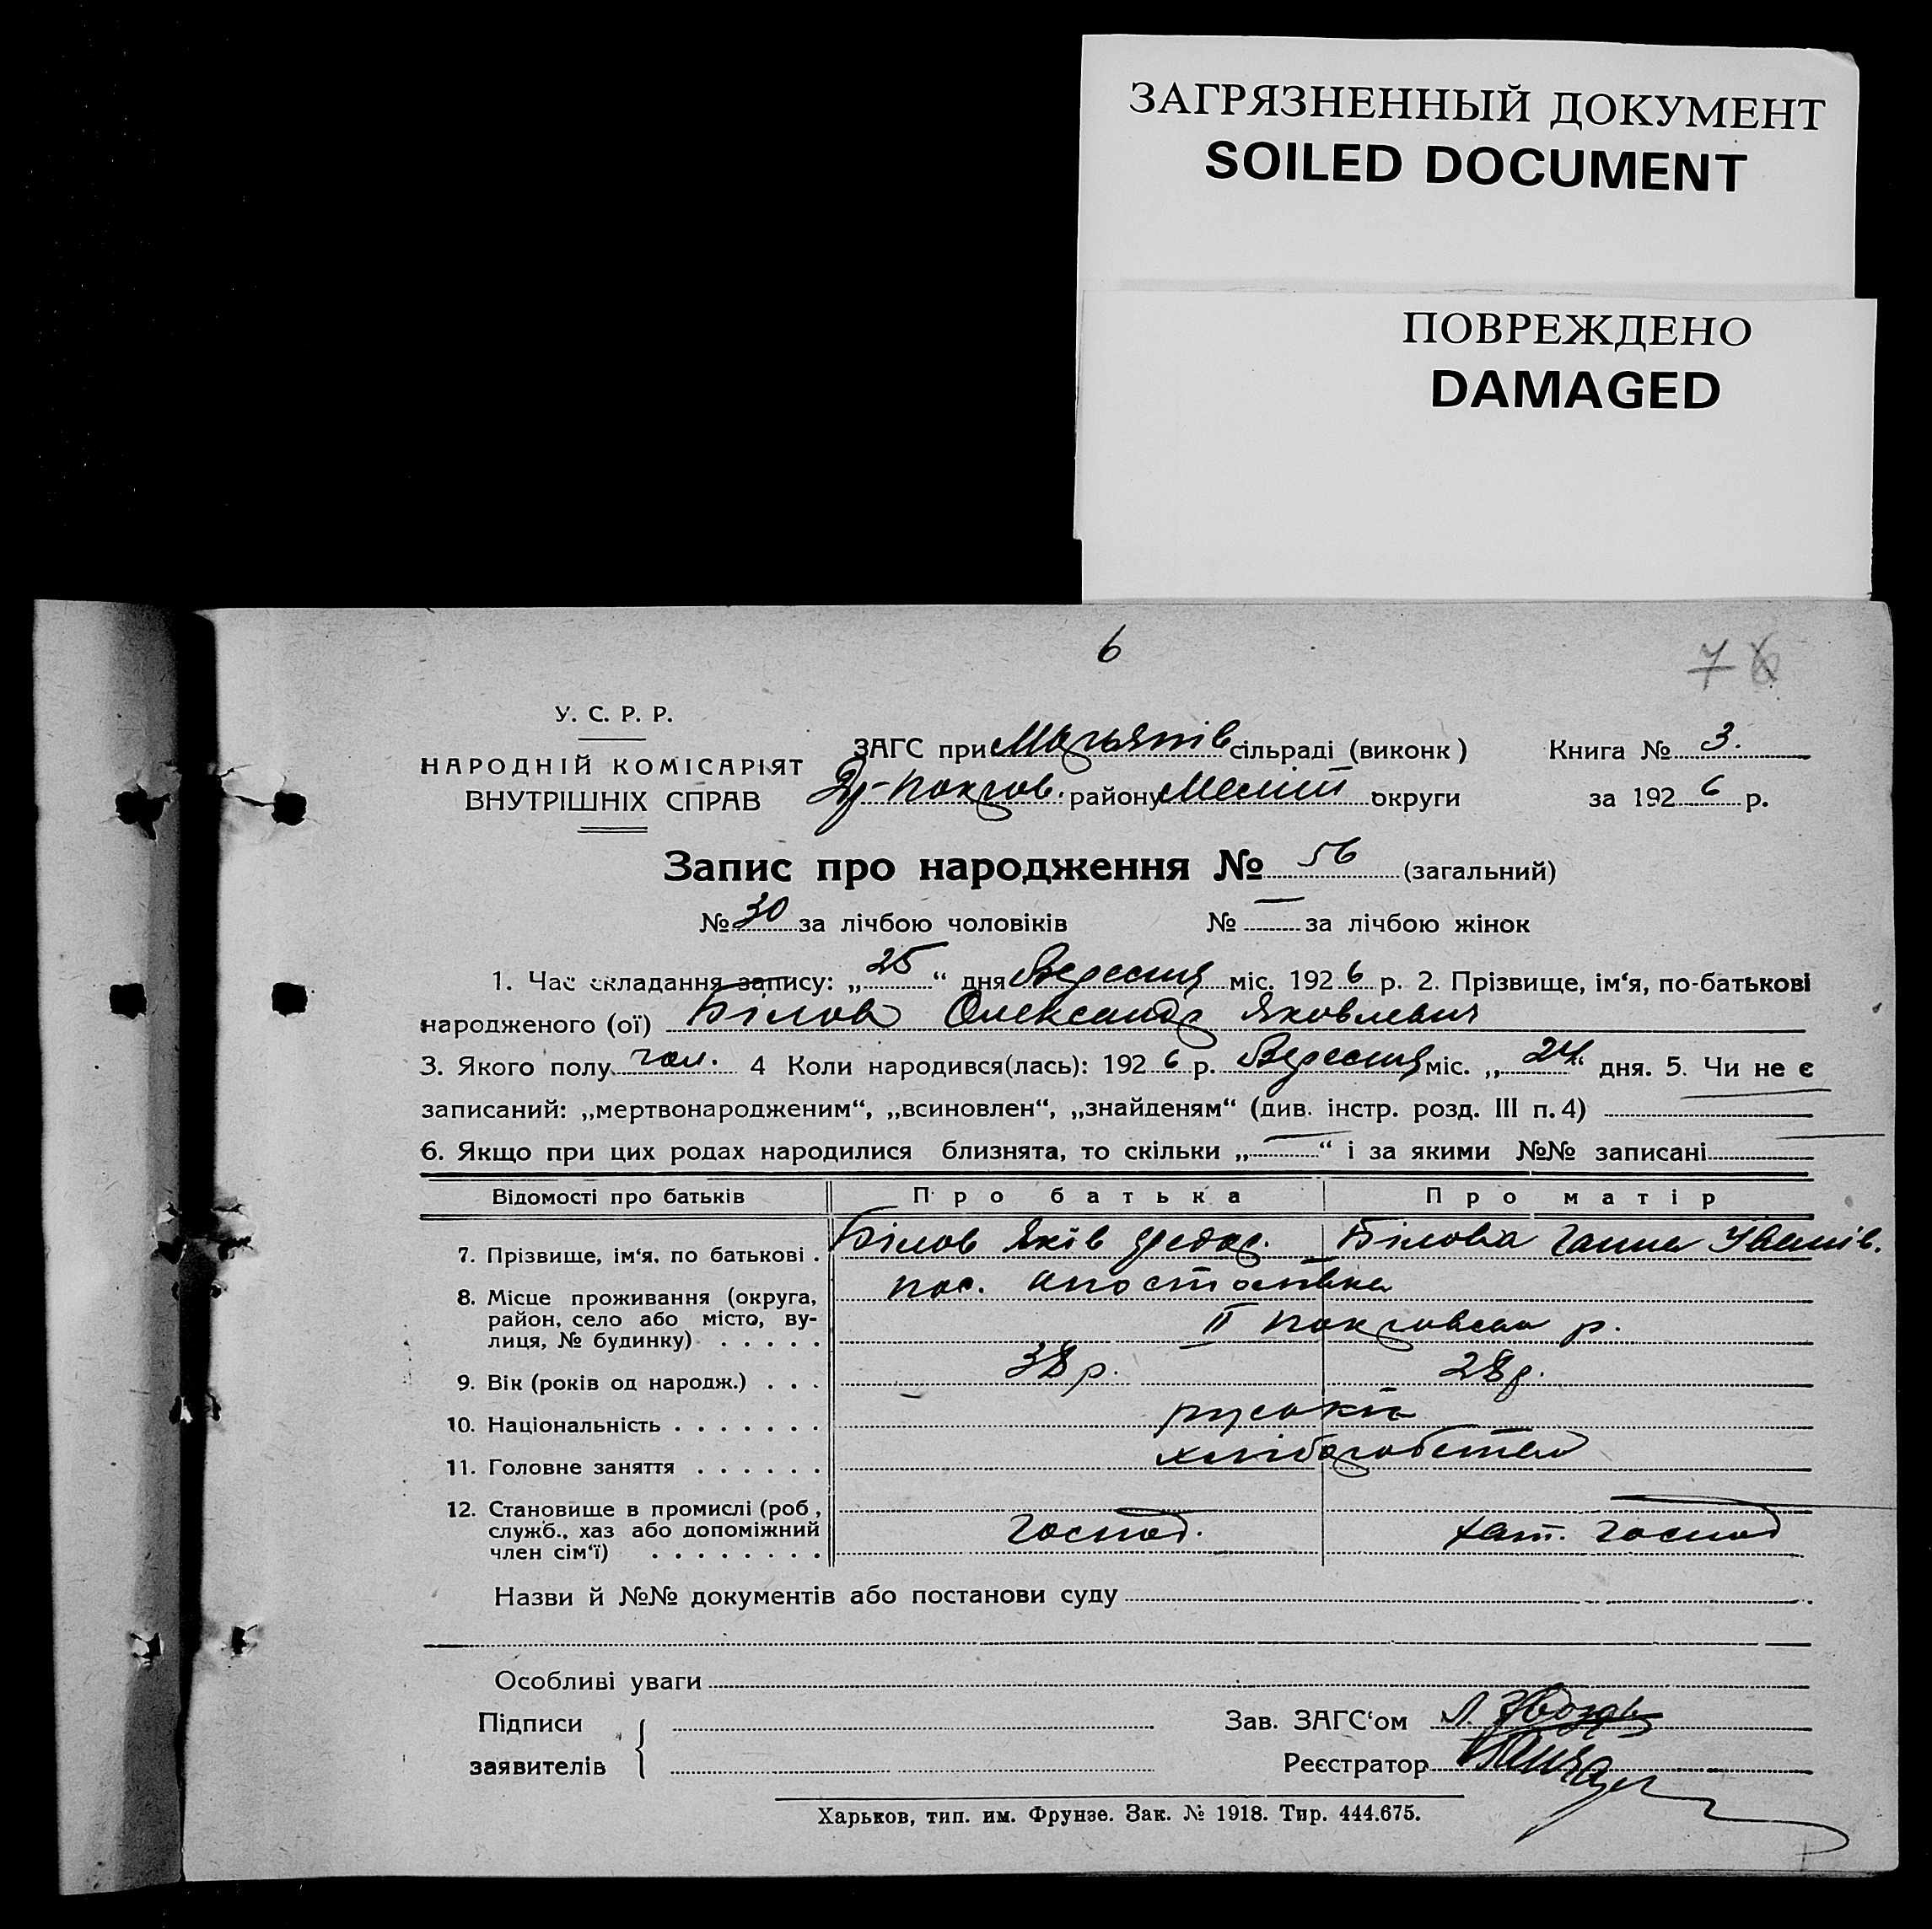 ЗАГРЯЗНЕННЫЙ ДОКУМЕНТ
SOILED DOCUMENT
ПОВРЕЖДЕНО
DAMAGED
6
7 6
У. С. Р. Р.
НАРОДНІЙ КОМІСАРІЯТ
ВНУТРІШНІХ СПРАВ
ЗАГС при Мар'янів сільраді (виконк)
Др-Покров. району Меліт округи
Книга № 3.
за 1926 р.
Запис про народження № 56 (загальний)
№ 30 за лічбою чоловіків № — за лічбою жінок
1. Час складання запису: „25“ дня Вересня міс. 1926 р. 2. Прізвище, ім‘я, по-батькові
народженого (ої) Білов Олександр Яковлевич
3. Якого полу чол. 4 Коли народився(лась): 1926 р. Вересня міс. „24“ дня. 5. Чи не є
записаний: „мертвонародженим“, „всиновлен“, „знайденям“ (див. інстр. розд. III п. 4) —
6. Якщо при цих родах народилися близнята, то скільки „—“ і за якими №№ записані —
Відомості про батьків Про батька Про матір
7. Прізвище, ім‘я, по батькові . Білов Яків Федор. Білова Ганна Іванів.
8. Місце проживання (округа, район, село або місто, вулиця, № будинку) . . . . . пос. Апостолівка
II Покровськ р.
9. Вік (років од народж.) . . . 38 р. 28 р.
10. Національність . . . . . . . руські
11. Головне заняття . . . . . . хліборобство
12. Становище в промислі (роб, служб., хаз або допоміжний член сім‘ї) . . . . . . . . Господ. хат. господ
Назви й №№ документів або постанови суду
Особливі уваги
Підписи
заявителів
Зав. ЗАГС‘ом
Реєстратор
Харьков, тип. им. Фрунзе. Зак. № 1918. Тир. 444.675.